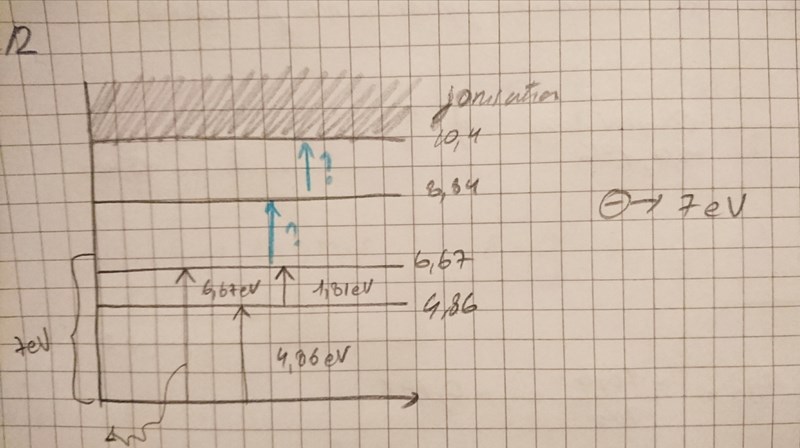 12
Jonisation
10,4
?
8,84
⊖→ 7eV
?
6,67
6,67eV 1,81eV
4,86
7eV
4,86eV